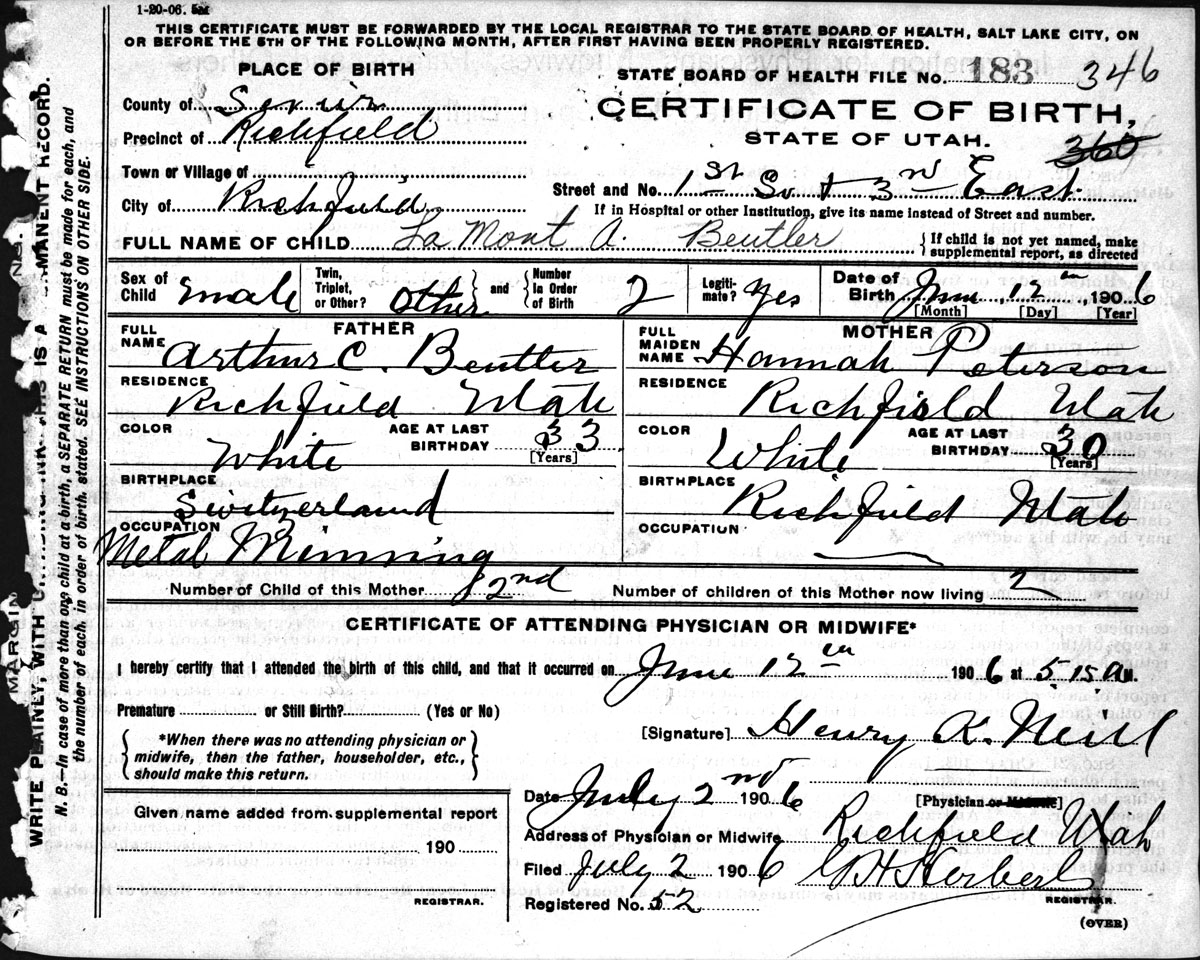 1-20-06. 5M
THIS CERTIFICATE MUST BE FORWARDED BY THE LOCAL REGISTRAR TO THE STATE BOARD OF HEALTH, SALT LAKE CITY, ON
OR BEFORE THE 5TH OF THE FOLLOWING MONTH, AFTER FIRST HAVING BEEN PROPERLY REGISTERED.
PLACE OF BIRTH
STATE BOARD OF HEALTH FILE No. 183 346
County of Sevier
CERTIFICATE OF BIRTH,
Precinct of Richfield
STATE OF UTAH.
360
Town or Village of
Street and No. 1st So + 3rd East
City of Richfield
If in Hospital or other Institution, give its name instead of Street and number.
FULL NAME OF CHILD La Mont A. Beutler { If child is not yet named, make supplemental report, as directed
Sex of Child male Twin, Triplet, or Other? Other } and { Number In Order of Birth 2 Legiti-mate? Yes Date of Birth June 12th, 1906
[Month] [Day] [Year]
FATHER MOTHER
FULL NAME Arthur C. Beutler FULL MAIDEN NAME Hannah Peterson
RESIDENCE Richfield Utah RESIDENCE Richfield Utah
COLOR White AGE AT LAST BIRTHDAY 33 [Years] COLOR White AGE AT LAST BIRTHDAY 30 [Years]
BIRTHPLACE Switzerland BIRTHPLACE Richfield Utah
OCCUPATION Metal Minning OCCUPATION
Number of Child of this Mother 2nd Number of children of this Mother now living 2
CERTIFICATE OF ATTENDING PHYSICIAN OR MIDWIFE*
I hereby certify that I attended the birth of this child, and that it occurred on June 12th 1906 at 5 15 A M.
Premature or Still Birth? (Yes or No)
[Signature] Henry K. Neill
*When there was no attending physician or
midwife, then the father, householder, etc.,
should make this return.
Date July 2nd 1906 [Physician or Midwife]
Given name added from supplemental report
190
REGISTRAR.
Address of Physician or Midwife Richfield Utah
Filed July 2 1906
Registered No. 52 REGISTRAR.
(OVER)
MARGIN
WRITE PLAINLY, WITH THIS IS A PERMANENT RECORD.
N. B.—In case of more than one child at a birth, a SEPARATE RETURN must be made for each, and
the number of each, in order of birth, stated. SEE INSTRUCTIONS ON OTHER SIDE.